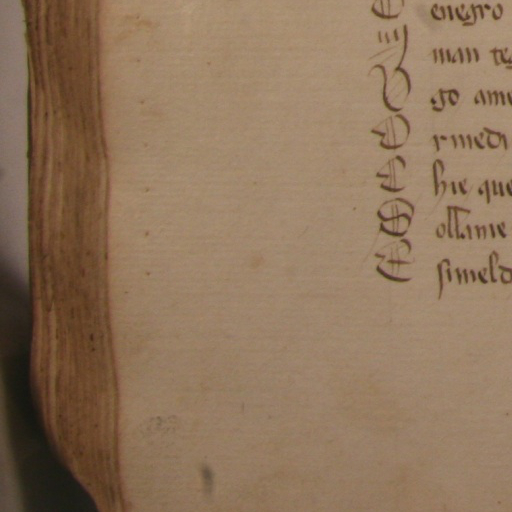 E enegro
man teg
go ame
O rmedi
E hie que
S ollame
E simeld